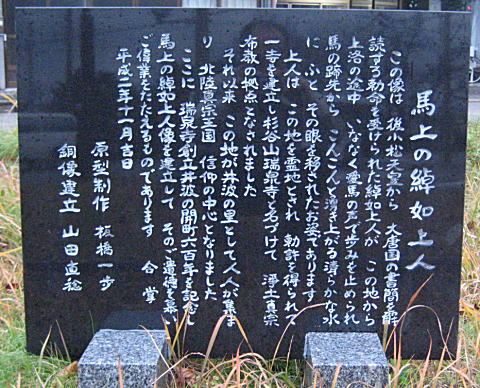 馬上の綽如上人
この像は 後小松天皇から 大唐国の書簡を解
読する勅命を受けられた綽如上人が この地から
上洛の途中 いななく愛馬の声で歩みを止められ
馬の蹄先から こんこんと湧き上がる清らかな水
に ふと その眼を移されたお姿であります
上人は この地を霊地とされ 勅許を得られて
一寺を建立し杉谷山瑞泉寺と名づけて 浄土真宗
布教の拠点となされました
それ以来 この地が井波の里として人々が集ま
り 北陸真宗王国 信仰の中心となりました
ここに 瑞泉寺創立井波の開町六百年を記念し
馬上の綽如上人像を建立して そのご遺徳を慕い
ご偉業をたたえるものであります 合掌
平成二年十一月吉日
原型制作 板橋一歩
銅像建立 山田直稔